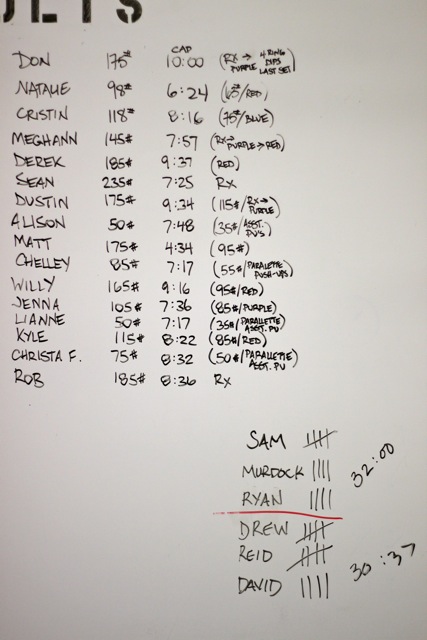 JETS
CAP
DON 175# 10:00 (RX → PURPLE 4 RING DIPS LAST SET)
NATALIE 98# 6:24 (65#/RED)
CRISTIN 118# 8:16 (75#/BLUE)
MEGHANN 145# 7:57 (RX → PURPLE → RED)
DEREK 185# 9:37 (RED)
SEAN 235# 7:25 RX
DUSTIN 175# 9:34 (115#/RX → PURPLE)
ALISON 50# 7:48 (35#/ASST. PU'S)
MATT 175# 4:34 (95#)
CHELLEY 85# 7:17 (55#/PARALETTE PUSH-UPS)
WILLY 165# 9:16 (95#/RED)
JENNA 105# 7:36 (85#/PURPLE)
LIANNE 50# 7:17 (35#/PARALLETTE ASST. PU)
KYLE 115# 8:22 (85#/RED)
CHRISTA F. 75# 8:32 (50#/PARALLETTE ASST. PU)
ROB 185# 8:36 RX
SAM
MURDOCK 32:00
RYAN
DREW
REID
DAVID 30:37